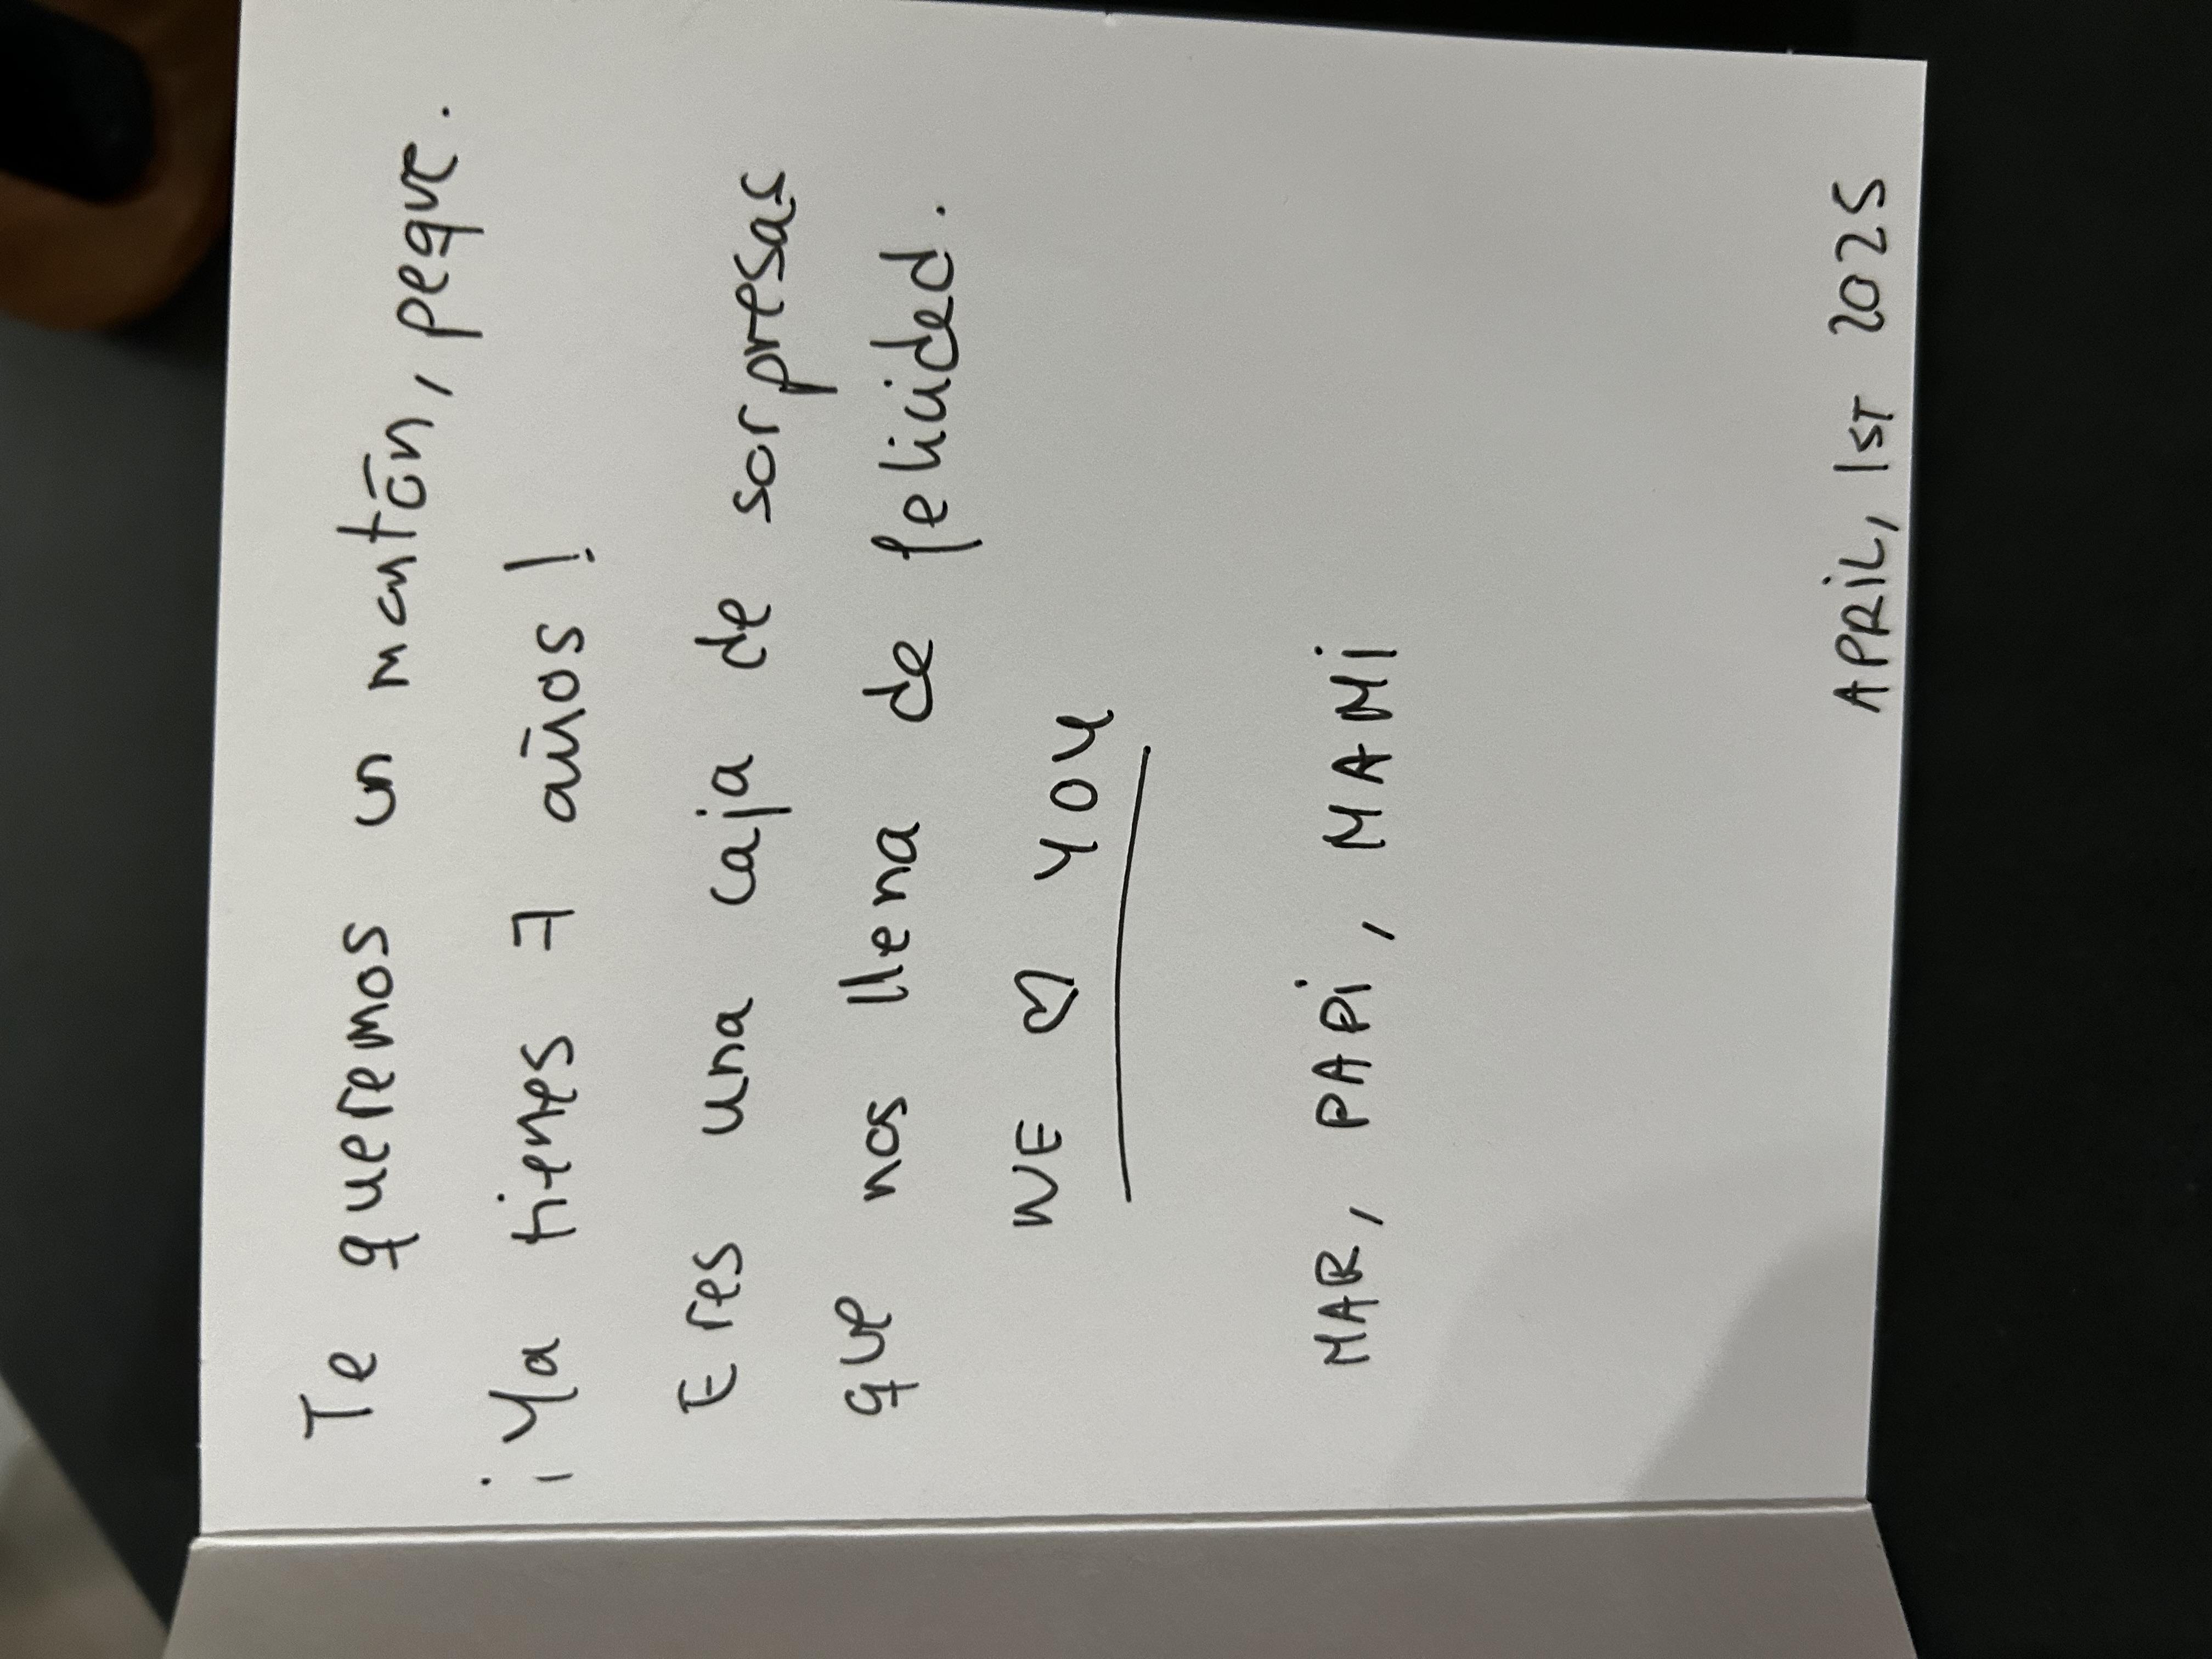 Te queremos un montón, peque.
¡Ya tienes 7 años!
Eres una caja de sorpresas
que nos llena de felicidad.
WE ♡ YOU
MAR, PAPI, MAMI
APRIL, 1ST 2025